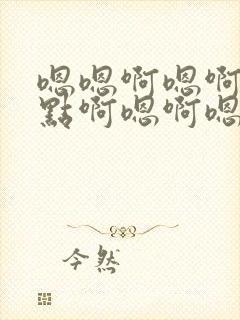 嗯嗯啊嗯啊
點啊嗯啊嗯
今然